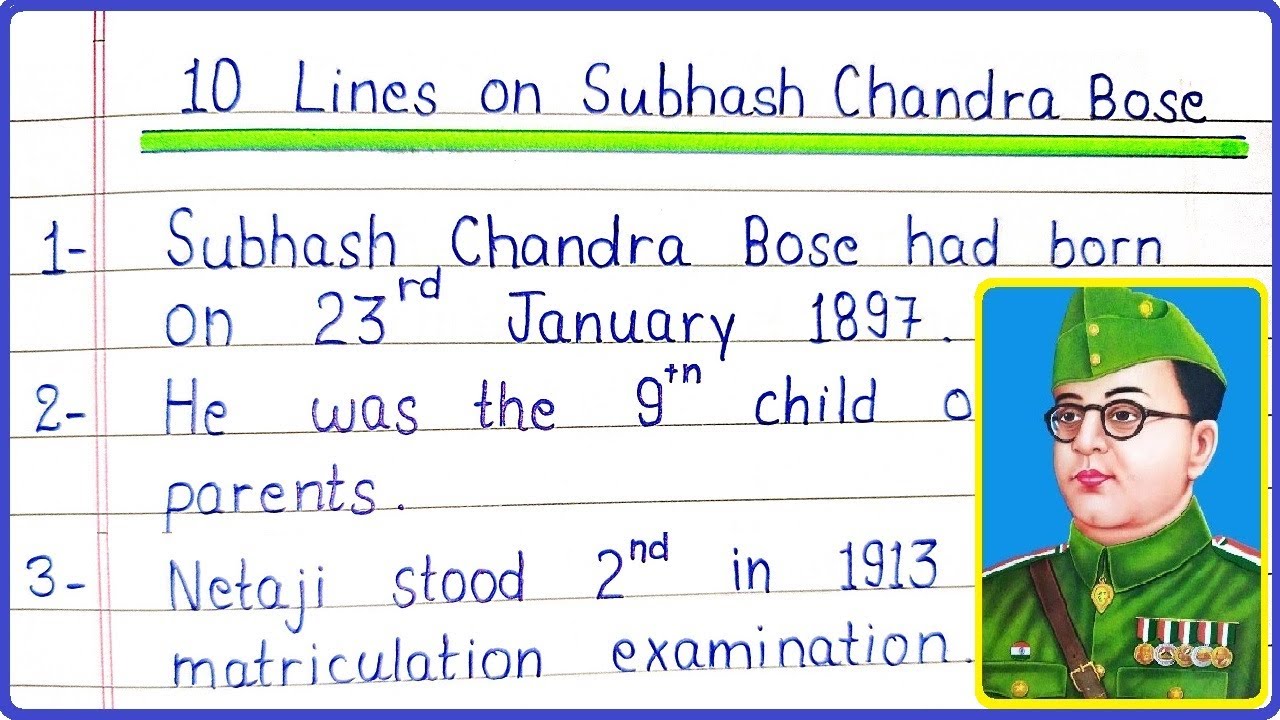 10 Lines on Subhash Chandra Bose
1- Subhash Chandra Bose had born
on 23rd January 1897.
2- He was the 9th child o
parents.
3- Netaji stood 2nd in 1913
matriculation examination.